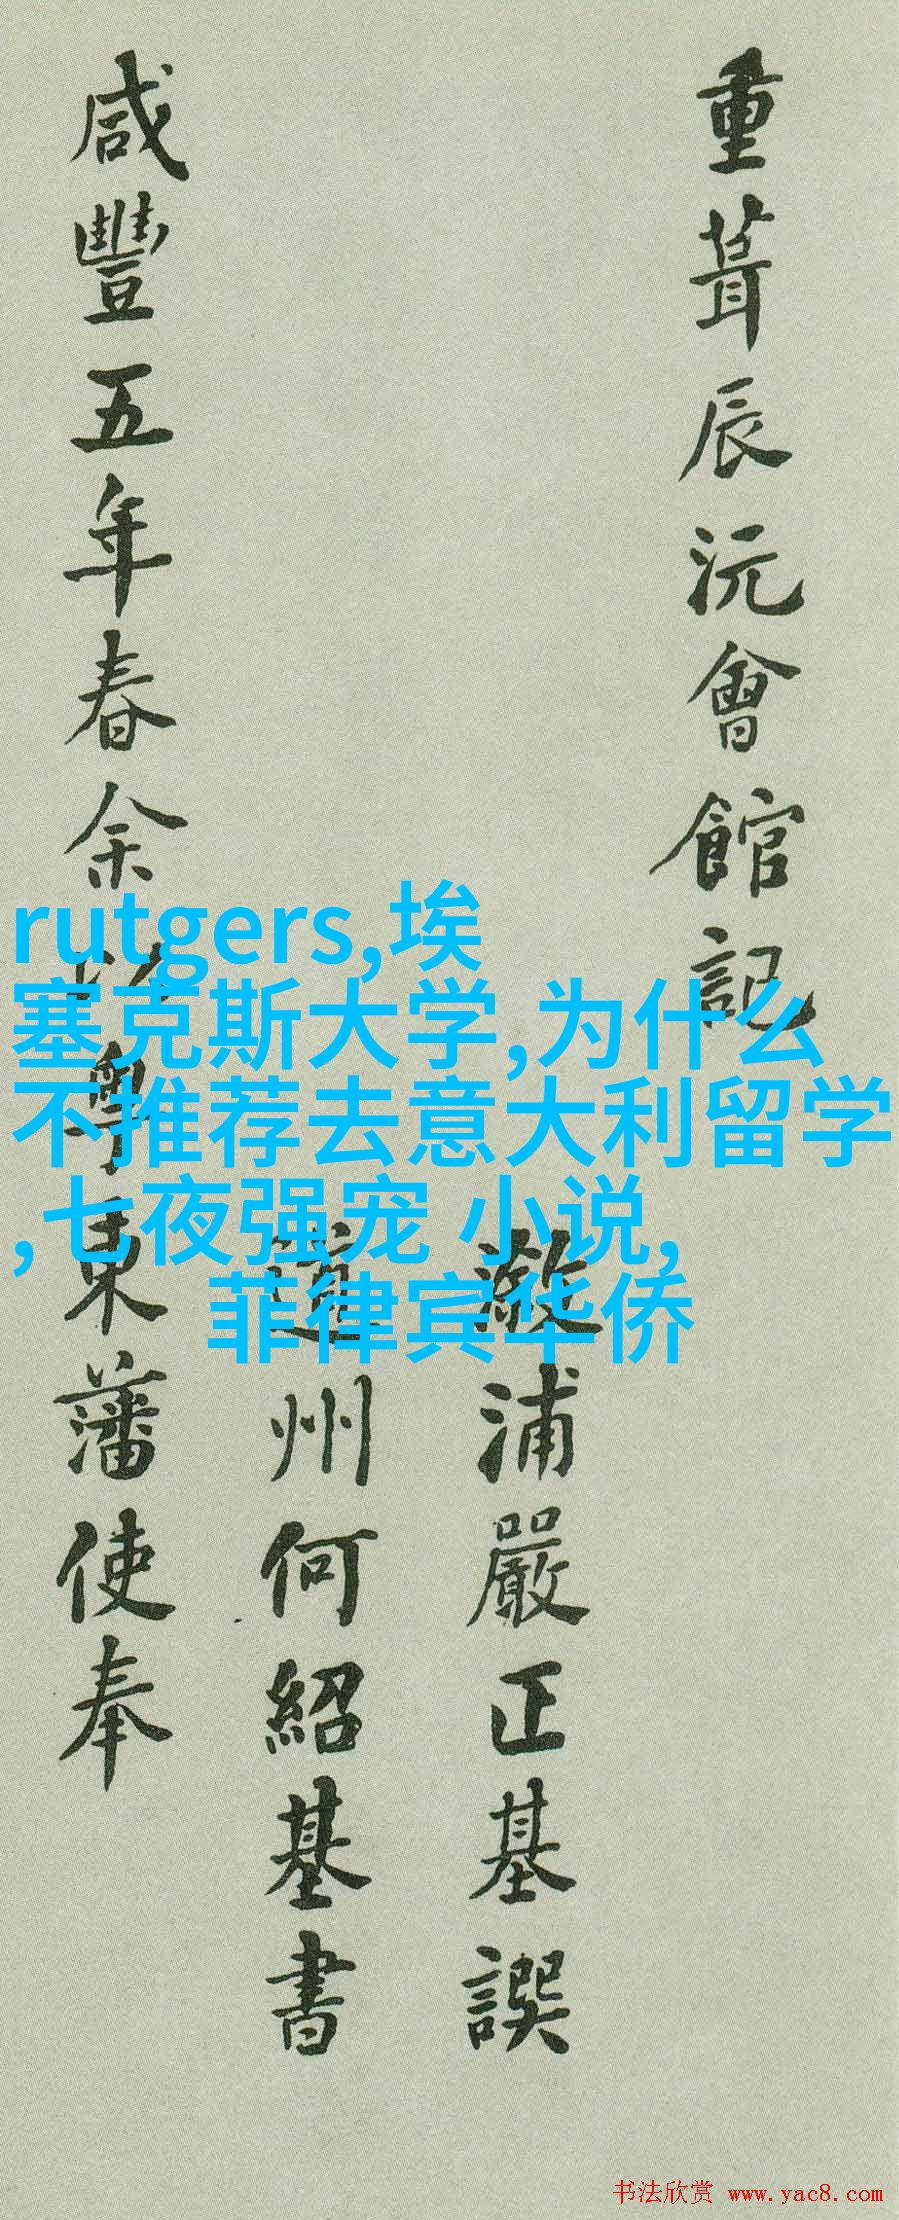 重葺辰沅會館記
漵浦嚴正基譔
道州何紹基書
咸豐五年春余以粤東藩使奉
rutgers,埃
塞克斯大学,为什么
不推荐去意大利留学
,七夜强宠 小说,
菲律宾华侨
书法欣赏 www.yac8.com